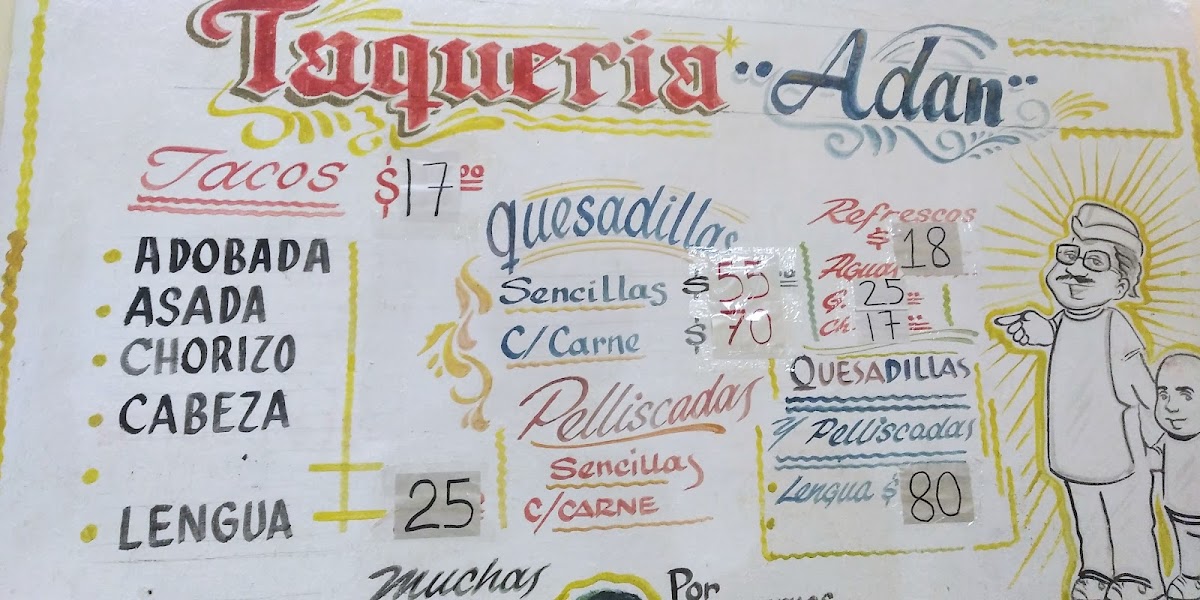 Taqueria "Adan"
Tacos $17.00
ADOBADA
ASADA
CHORIZO
CABEZA
LENGUA 25
quesadillas
Sencillas $55
C/Carne $70
Pelliscadas
Sencillas
C/CARNE
Refrescos
$18
Aguas
G. 25
Ch. 17
QUESADILLAS
y Pelliscadas
Lengua $80
Muchas
Por